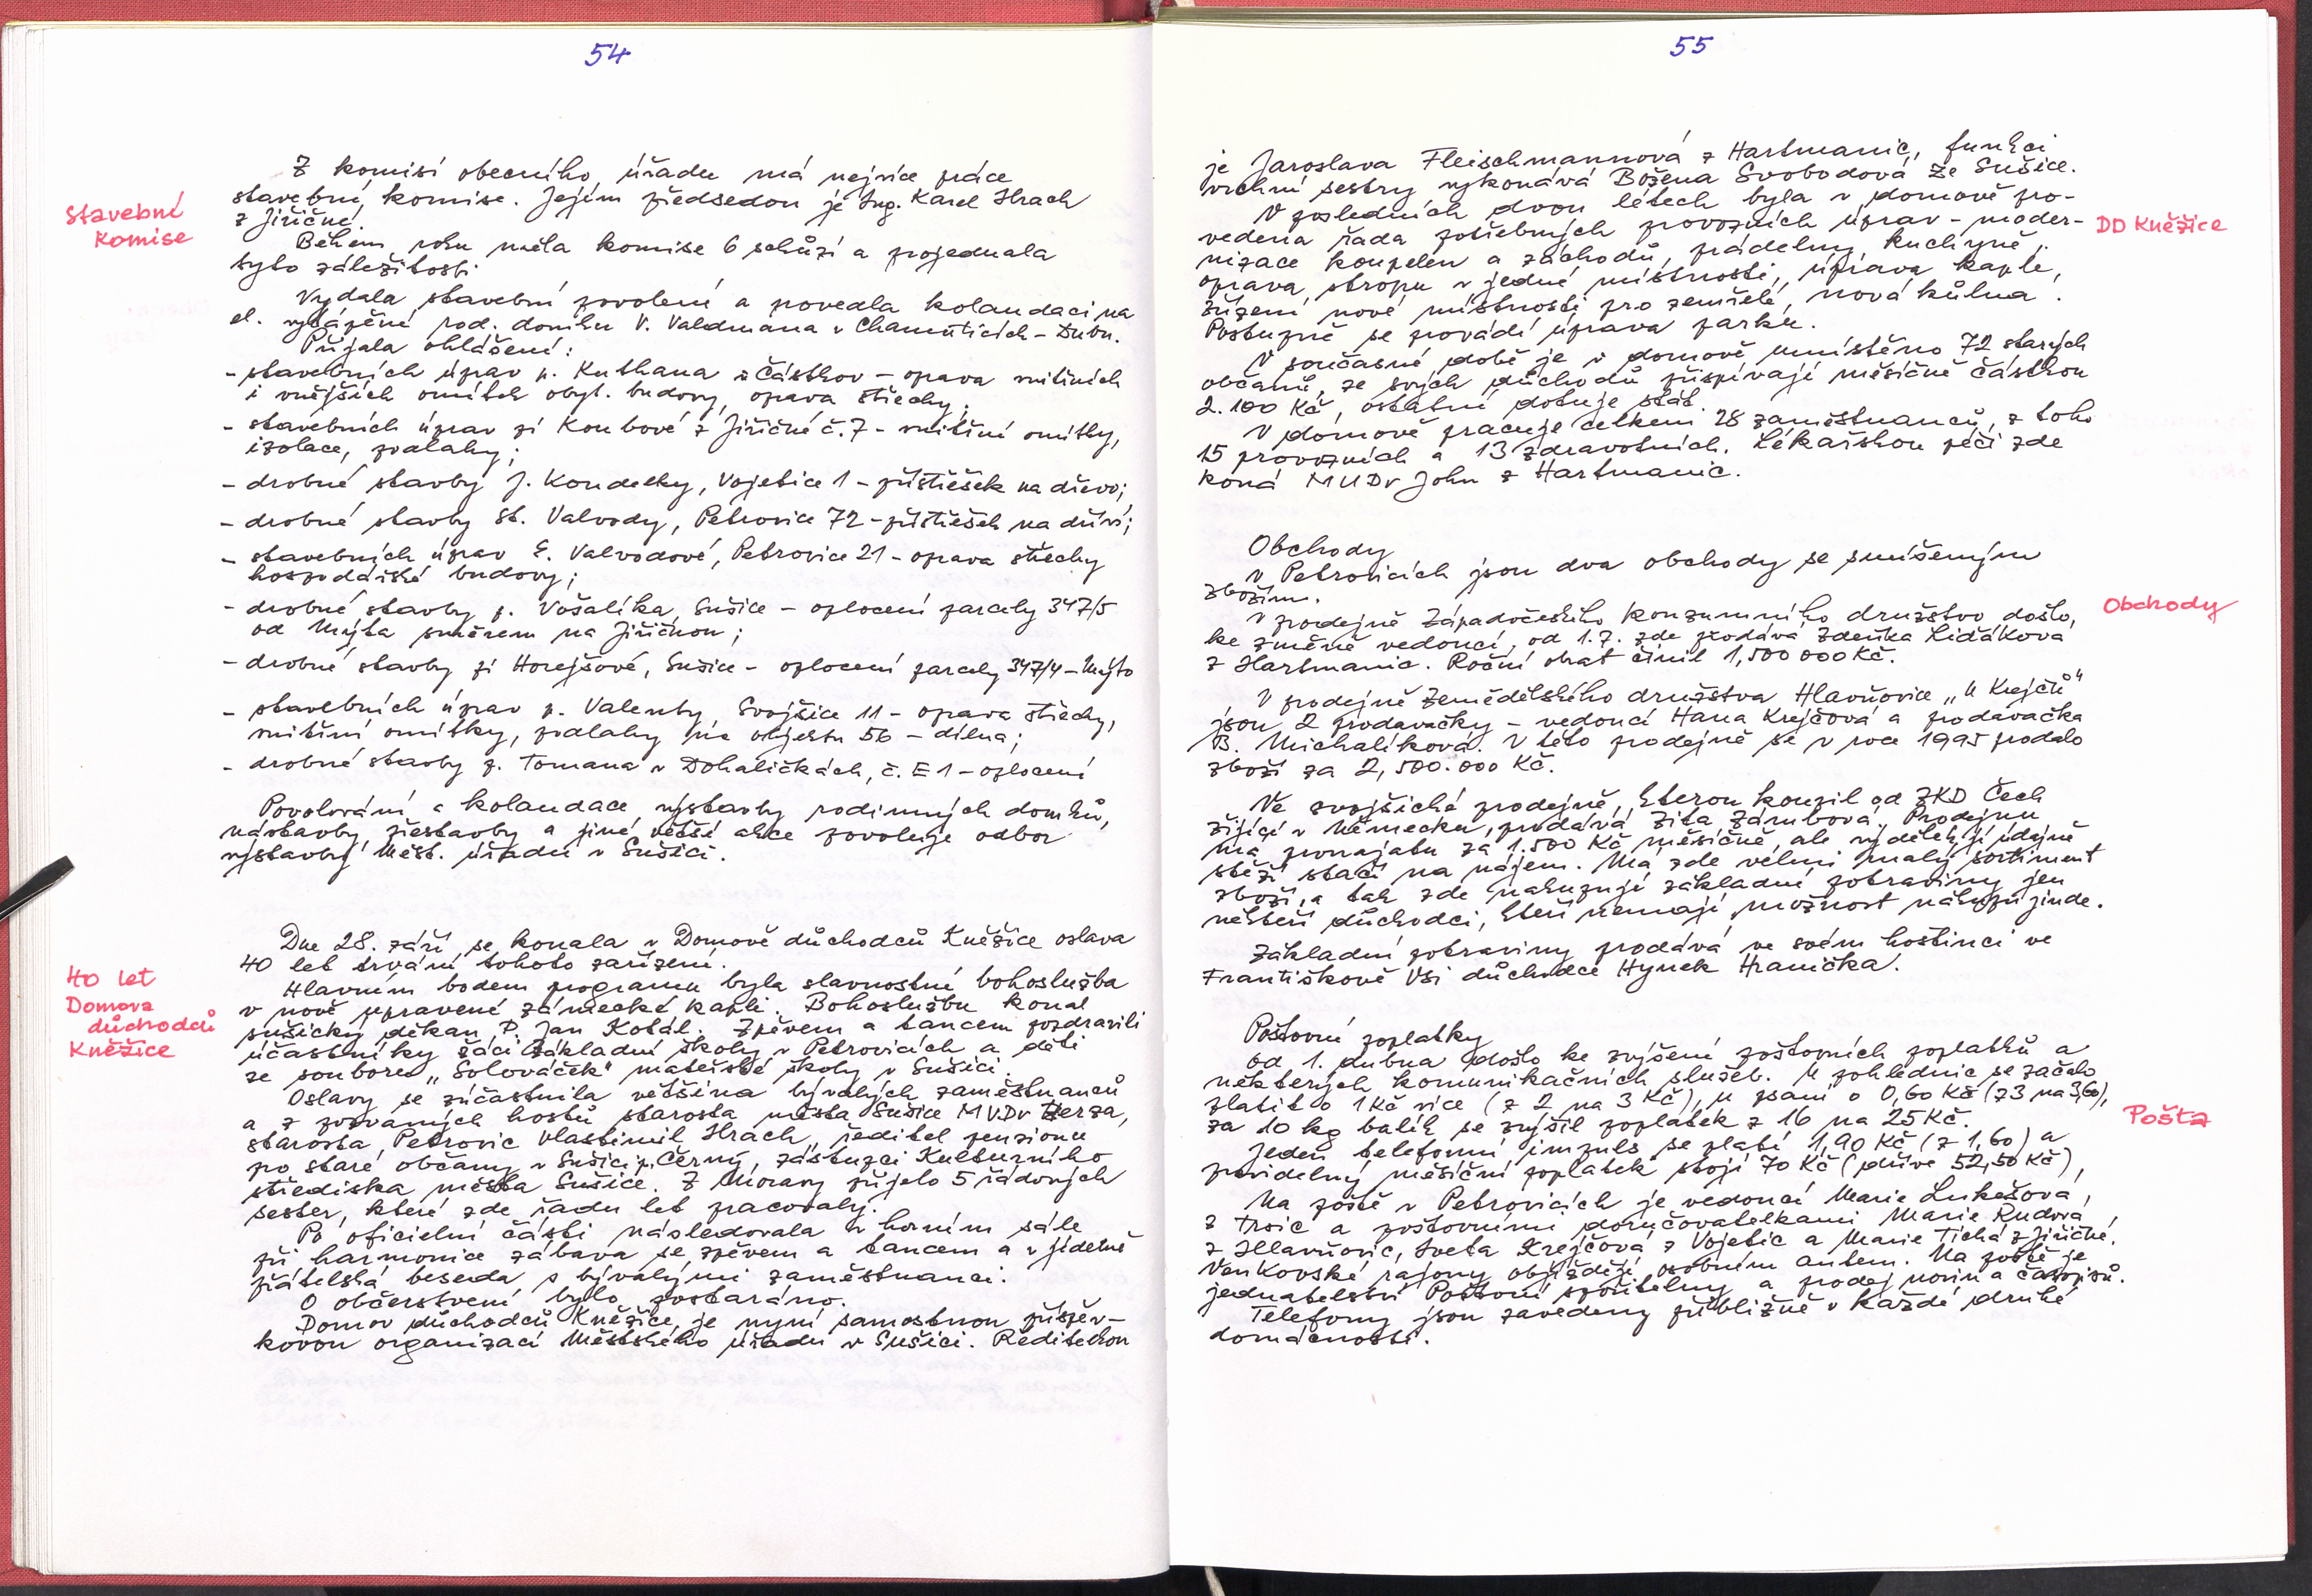 54
Z komisí obecního úřadu má nejvíce práce
stavební komise. Jejím předsedou je Ing. Karel Hrach
z Jiřičné.
Stavební
komise
Během roku měla komise 6 schůzí a projednala
tyto záležitosti
Vydala stavební povolení a povedla kolaudaci na
el. vytápění rod. domku V. Valdmana v Chamuticích - Dubu.
Přijala ohlášení:
- stavebních úprav p. Kuthana v Částkov - opava vnitřních
i vnějších omítek obyt. budovy, opava střechy;
- stavebních úprav pí Koubové z Jiřičné č. 7 - vnitřní omítky,
izolace, podlahy;
- drobné stavby J. Koudelky, Vojetice 1 - přístřešek na dřevo;
- drobné stavby St. Valvody, Petrovice 72 - přístřešek na dříví;
- stavebních úprav E. Valvodové, Petrovice 21 - oprava střechy
hospodářské budovy;
- drobné stavby p. Vošalíka, Sušice - oplocení parcely 347/5
od Mýta směrem na Jiřičnou;
- drobné stavby pí Horejšové, Sušice - oplocení parcely 347/4 - Mýto
- stavebních úprav p. Valenty, Svojšice 11 - oprava střechy,
vnitřní omítky, podlahy na objektu 56 - dílna;
- drobné stavby p. Tomana v Dohaličkách, č. E 1 - oplocení
Povolování a kolaudace výstavby rodinných domků,
nástavby, přestavby a jiné větší akce povoluje odbor
výstavby Měst. úřadu v Sušici.
Dne 28. září se konala v Domově důchodců Kněžice oslava
40 let trvání tohoto zařízení.
40 let
Domova
důchodců
Kněžice
Hlavním bodem programu byla slavnostní bohoslužba
v nově upravené zámecké kapli. Bohoslužbu konal
sušický děkan P. Jan Kotál. Zpěvem a tancem pozdravili
účastníky žáci Základní školy v Petrovicích a děti
ze souboru „Solováček" mateřské školy v Sušici.
Oslavy se zúčastnila většina bývalých zaměstnanců
a z pozvaných hostů starosta města Sušice MVDr Zerza,
starosta Petrovic Vlastimil Hrach, ředitel penzionu
po staré občany v Sušici p. Černý, zástupci Kulturního
střediska města Sušice. Z Moravy přijelo 5 řádových
sester, které zde řadu let pracovaly.
Po oficielní části následovala v horním sále
při harmonice zábava se zpěvem a tancem a v jídelně
přátelská beseda s bývalými zaměstnanci.
O občerstvení bylo postaráno.
Domov důchodců Kněžice je nyní samostnou příspěv-
kovou organizací Městského úřadu v Sušici. Ředitelkou
55
je Jaroslava Fleischmannová z Hartmanic, funkci
vrchní sestry vykonává Božena Svobodová ze Sušice.
V posledních dvou létech byla v domově pro-
vedena řada potřebných provozních úprav - moder-
DD Kněžice
nizace koupelen a záchodů, prádelny, kuchyně,
oprava stropu v jedné místnosti, úprava kaple,
zřízení nové místnosti pro zemřelé, nová kůlna.
Postupně se provádí úprava parku.
V současné době je v domově umístěno 72 starých
občanů, ze svých důchodů přispívají měsíčně částkou
2.100 Kč, ostatní dotuje stát.
V domově pracuje celkem 28 zaměstnanců, z toho
15 provozních a 13 zdravotních. Lékařskou péči zde
koná MUDr John z Hartmanic.
Obchody
V Petrovicích jsou dva obchody se smíšeným
zbožím.
Obchody
V prodejně Západočeského konzumního družstvo došlo,
ke změně vedoucí, od 1.7. zde prodává Zdeňka Lidáková
z Hartmanic. Roční obrat činil 1,500 000 Kč.
V prodejně Zemědělského družstva Hlavňovice „U Krejčů"
jsou 2 prodavačky - vedoucí Hana Krejčová a prodavačka
B. Michalíková. V této prodejně se v roce 1995 prodalo
zboží za 2,500.000 Kč.
Ve svojšické prodejně, kterou koupil od ZKD Čech
žijící v Německu, prodává Zita Zárubová. Prodejnu
má pronajatu za 1.500 Kč měsíčně, ale výdělek jí údajně
stěží stačí na nájem. Má zde velmi malý sortiment
zboží, a tak zde nakupují základní potraviny jen
někteří důchodci, kteří nemají možnost nákupu jinde.
Základní potraviny prodává ve svém hostinci ve
Františkově Vsi důchodce Hynek Hranička.
Poštovní poplatky
Od 1. dubna došlo ke zvýšení poštovních poplatků a
některých komunikačních služeb. U pohlednic se začalo
platit o 1 Kč více (z 2 na 3 Kč), u psaní o 0,60 Kč (z 3 na 3,60),
za 10 kg balík se zvýšil poplatek z 16 na 25 Kč.
Pošta
Jeden telefonní impuls se platí 1,90 Kč (z 1,60) a
pravidelný měsíční poplatek stojí 70 Kč (dříve 52,50 Kč),
Na poště v Petrovicích je vedoucí Marie Lukešová,
z Trsic a poštovními doručovatelkami Marie Rudová
z Hlavňovic, Iveta Krejčová z Vojetic a Marie Tichá z Jiřičné.
Venkovské rajony objíždějí osobním autem. Na poště je
jednatelství Poštovní spořitelny a prodej novin a časopisů.
Telefony jsou zavedeny přibližně v každé druhé
domácnosti.